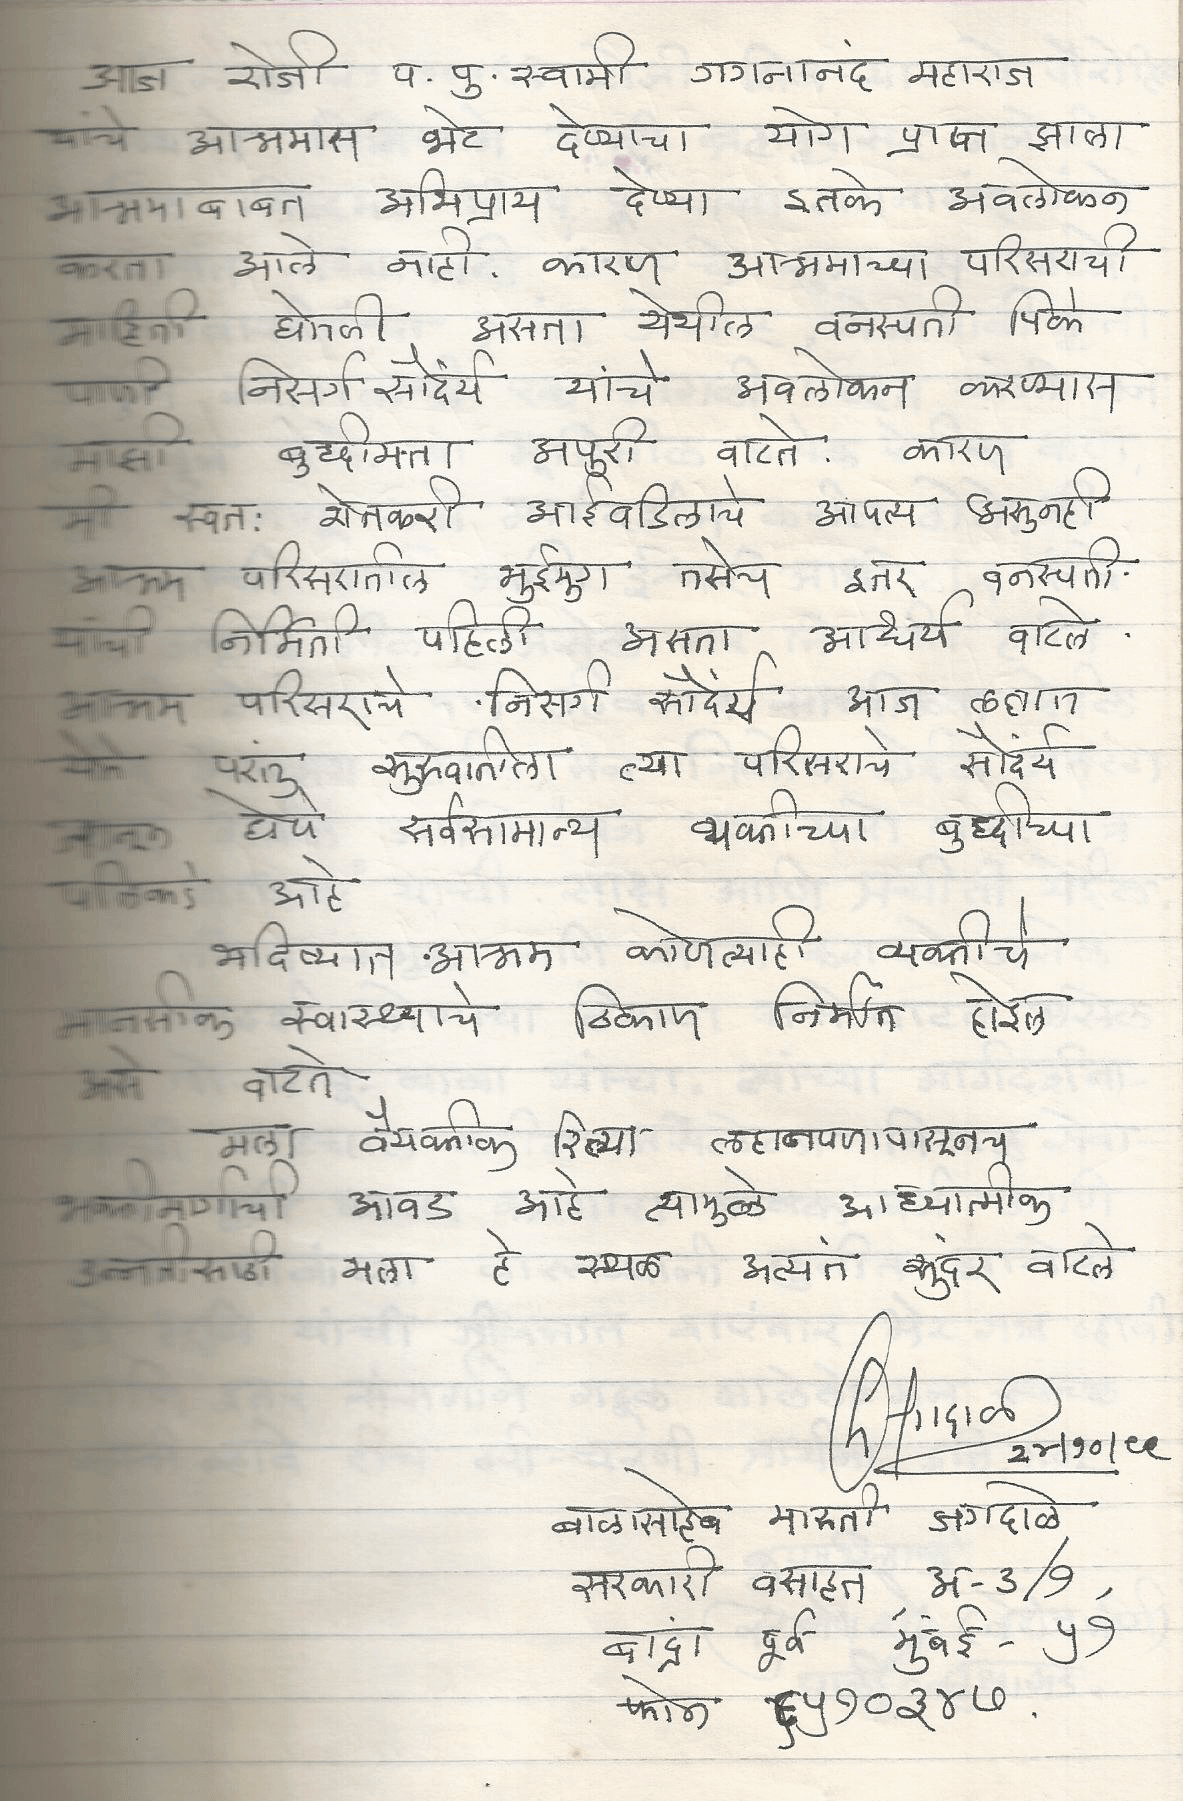 आज रोजी प. पु. स्वामी गगनानंद महाराज
यांचे आश्रमास भेट देण्याचा योग प्राप्त झाला
आश्रमाबाबत अभिप्राय देण्या इतके अवलोकन
करता आले नाही. कारण आश्रमाच्या परिसराची
माहिती घेतली असता येथील वनस्पती पिके
पाणी निसर्ग सौदंर्य यांचे अवलोकन करण्यास
माझी बुध्दीमत्ता अपुरी वाटते. कारण
मी स्वत: शेतकरी आईवडिलाचे आपत्य असुनही
आश्रम परिसरातील भुईमुग तसेच इतर वनस्पती.
यांची निर्मिती पहिली असता आश्चर्य वाटले.
आश्रम परिसराचे निसर्ग सौदंर्य आज लहान
येते परंतु सुरुवातीला त्या परिसराचे सौदंर्य
जाणून घेणे सर्वसामान्य व्यक्तीच्या बुध्दीच्या
पलिकडे आहे
भविष्यात आश्रम कोणत्याही व्यक्तीचे
मानसीक स्वास्थ्याचे ठिकाण निर्माण होईल
असे वाटते
मला वैयक्तीक रित्या लहानपणापासूनच
भक्तीमार्गाची आवड आहे त्यामुळे आध्यात्मीक
उन्नतीसाठी मला हे स्थळ अत्यंत सुंदर वाटले
२४/१०/९९
बाळासाहेब मारुती जगदाळे
सरकारी वसाहत अ-३/७,
बांद्रा पूर्व मुंबई - ५१
फोन ६५१०३४७.